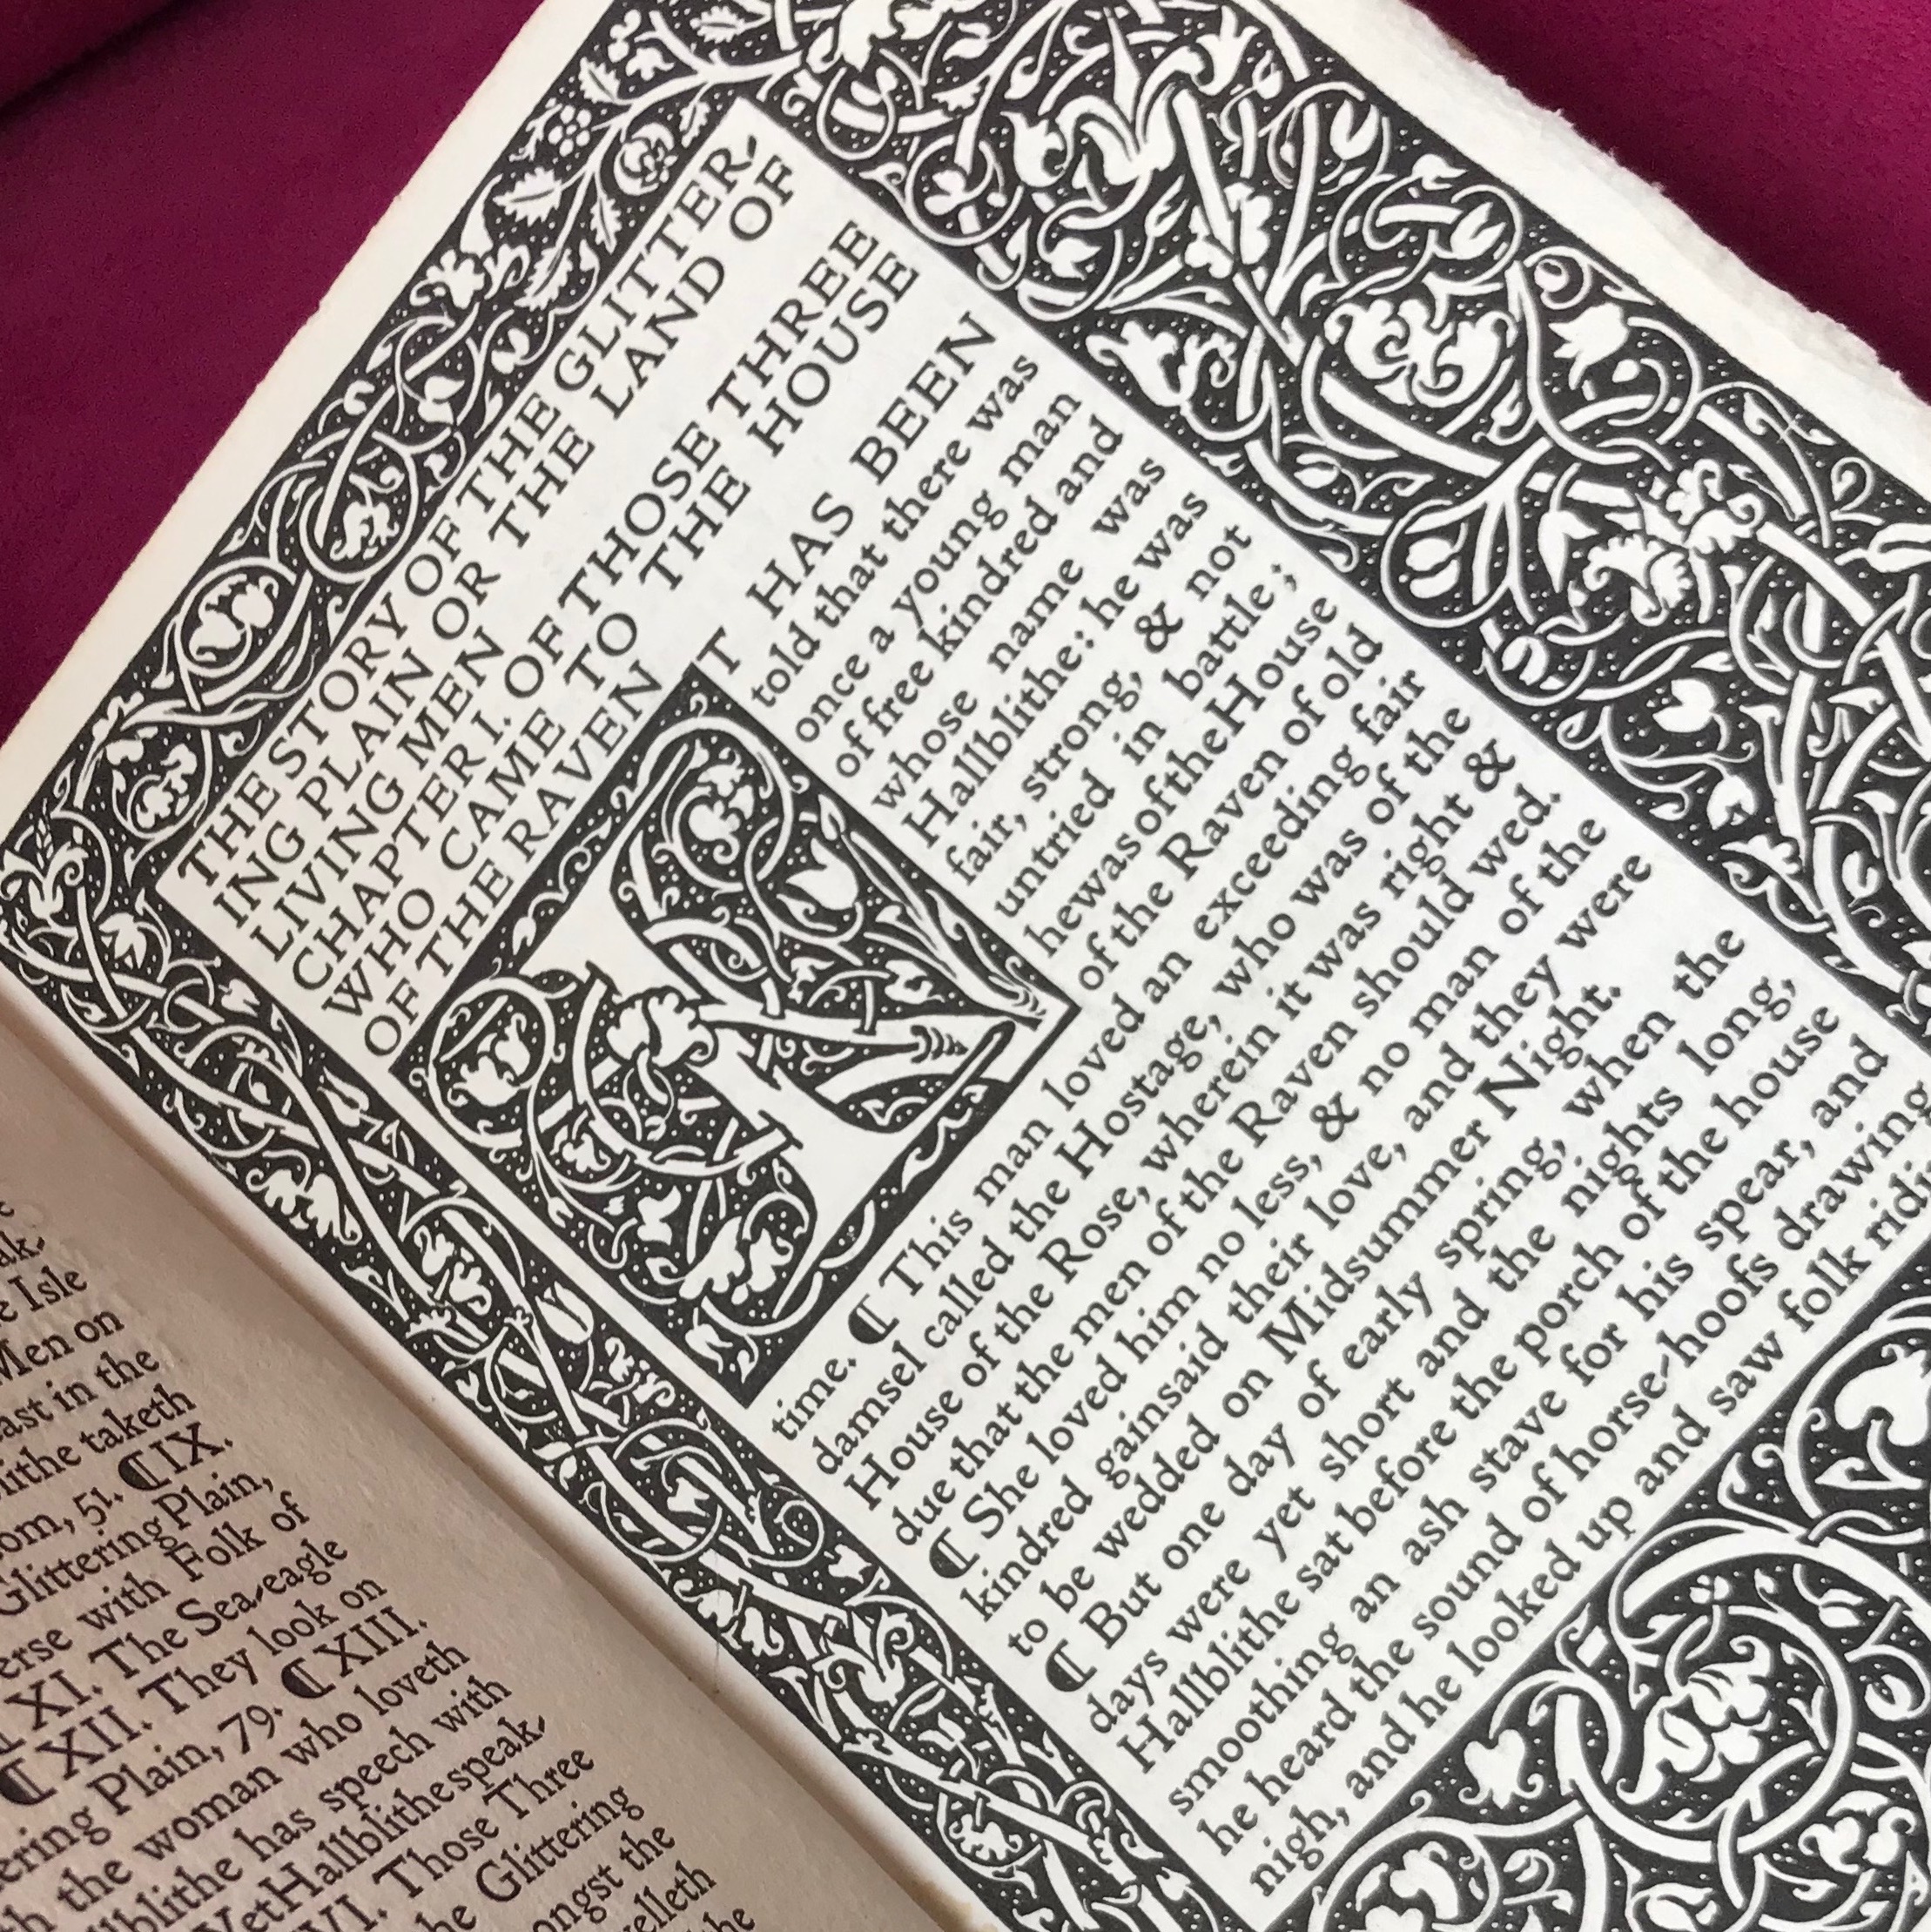 ak-
Isle
Men on
east in the
taketh
om, 51. ⁋IX.
Glittering Plain,
erse with Folk of
XI. The Sea-eagle
⁋XII. They look on
ering Plain, 79. ⁋XIII.
the woman who loveth
blithe has speech with
Yet Hallblithe speak-
VI. Those Three
the Glittering
ongst the
elleth
THE STORY OF THE GLITTER-
ING PLAIN OR THE LAND OF
LIVING MEN
CHAPTER I. OF THOSE THREE
WHO CAME TO THE HOUSE
OF THE RAVEN
IT HAS BEEN
told that there was
once a young man
of free kindred and
whose name was
Hallblithe: he was
fair, strong, & not
untried in battle;
he was of the House
of the Raven of old
time. ⁋ This man loved an exceeding fair
damsel called the Hostage, who was of the
House of the Rose, wherein it was right &
due that the men of the Raven should wed.
⁋ She loved him no less, & no man of the
kindred gainsaid their love, and they were
to be wedded on Midsummer Night.
⁋ But one day of early spring, when the
days were yet short and the nights long,
Hallblithe sat before the porch of the house
smoothing an ash stave for his spear, and
he heard the sound of horse-hoofs drawing
nigh, and he looked up and saw folk ridi